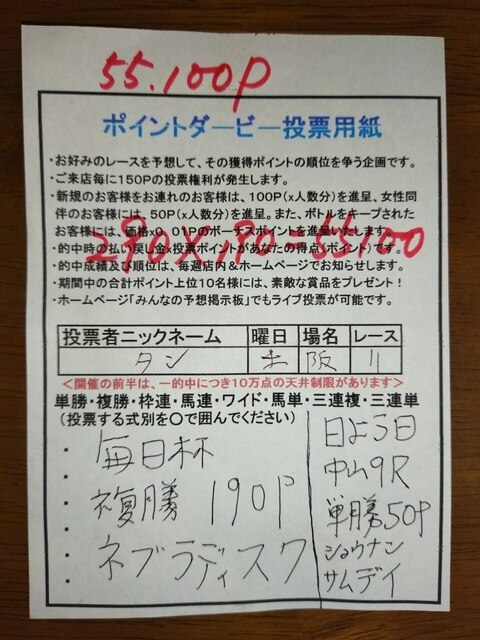 55.100P
ポイントダービー投票用紙
・お好みのレースを予想して、その獲得ポイントの順位を争う企画です。
・ご来店毎に150Pの投票権利が発生します。
・新規のお客様をお連れのお客様は、100P(x人数分)を進呈、女性同
伴のお客様には、50P(x人数分)を進呈。また、ボトルをキープされた
お客様には、価格x0.01Pのボーナスポイントを進呈いたします。
・的中時の払い戻し金x投票ポイントがあなたの得点(ポイント)です。
290×190=55100
・的中成績及び順位は、毎週店内&ホームページでお知らせします。
・期間中の合計ポイント上位10名様には、素敵な賞品をプレゼント!
・ホームページ「みんなの予想掲示板」でもライブ投票が可能です。
投票者ニックネーム 曜日 場名 レース
タン 土 阪 11
<開催の前半は、一的中につき10万点の天井制限があります>
単勝・複勝・枠連・馬連・ワイド・馬単・三連複・三連単
(投票する式別を〇で囲んでください)
・毎日杯
・複勝 190P
・ネブラディスク
日よう日
中山9R
単勝50P
ショウナン
サムデイ